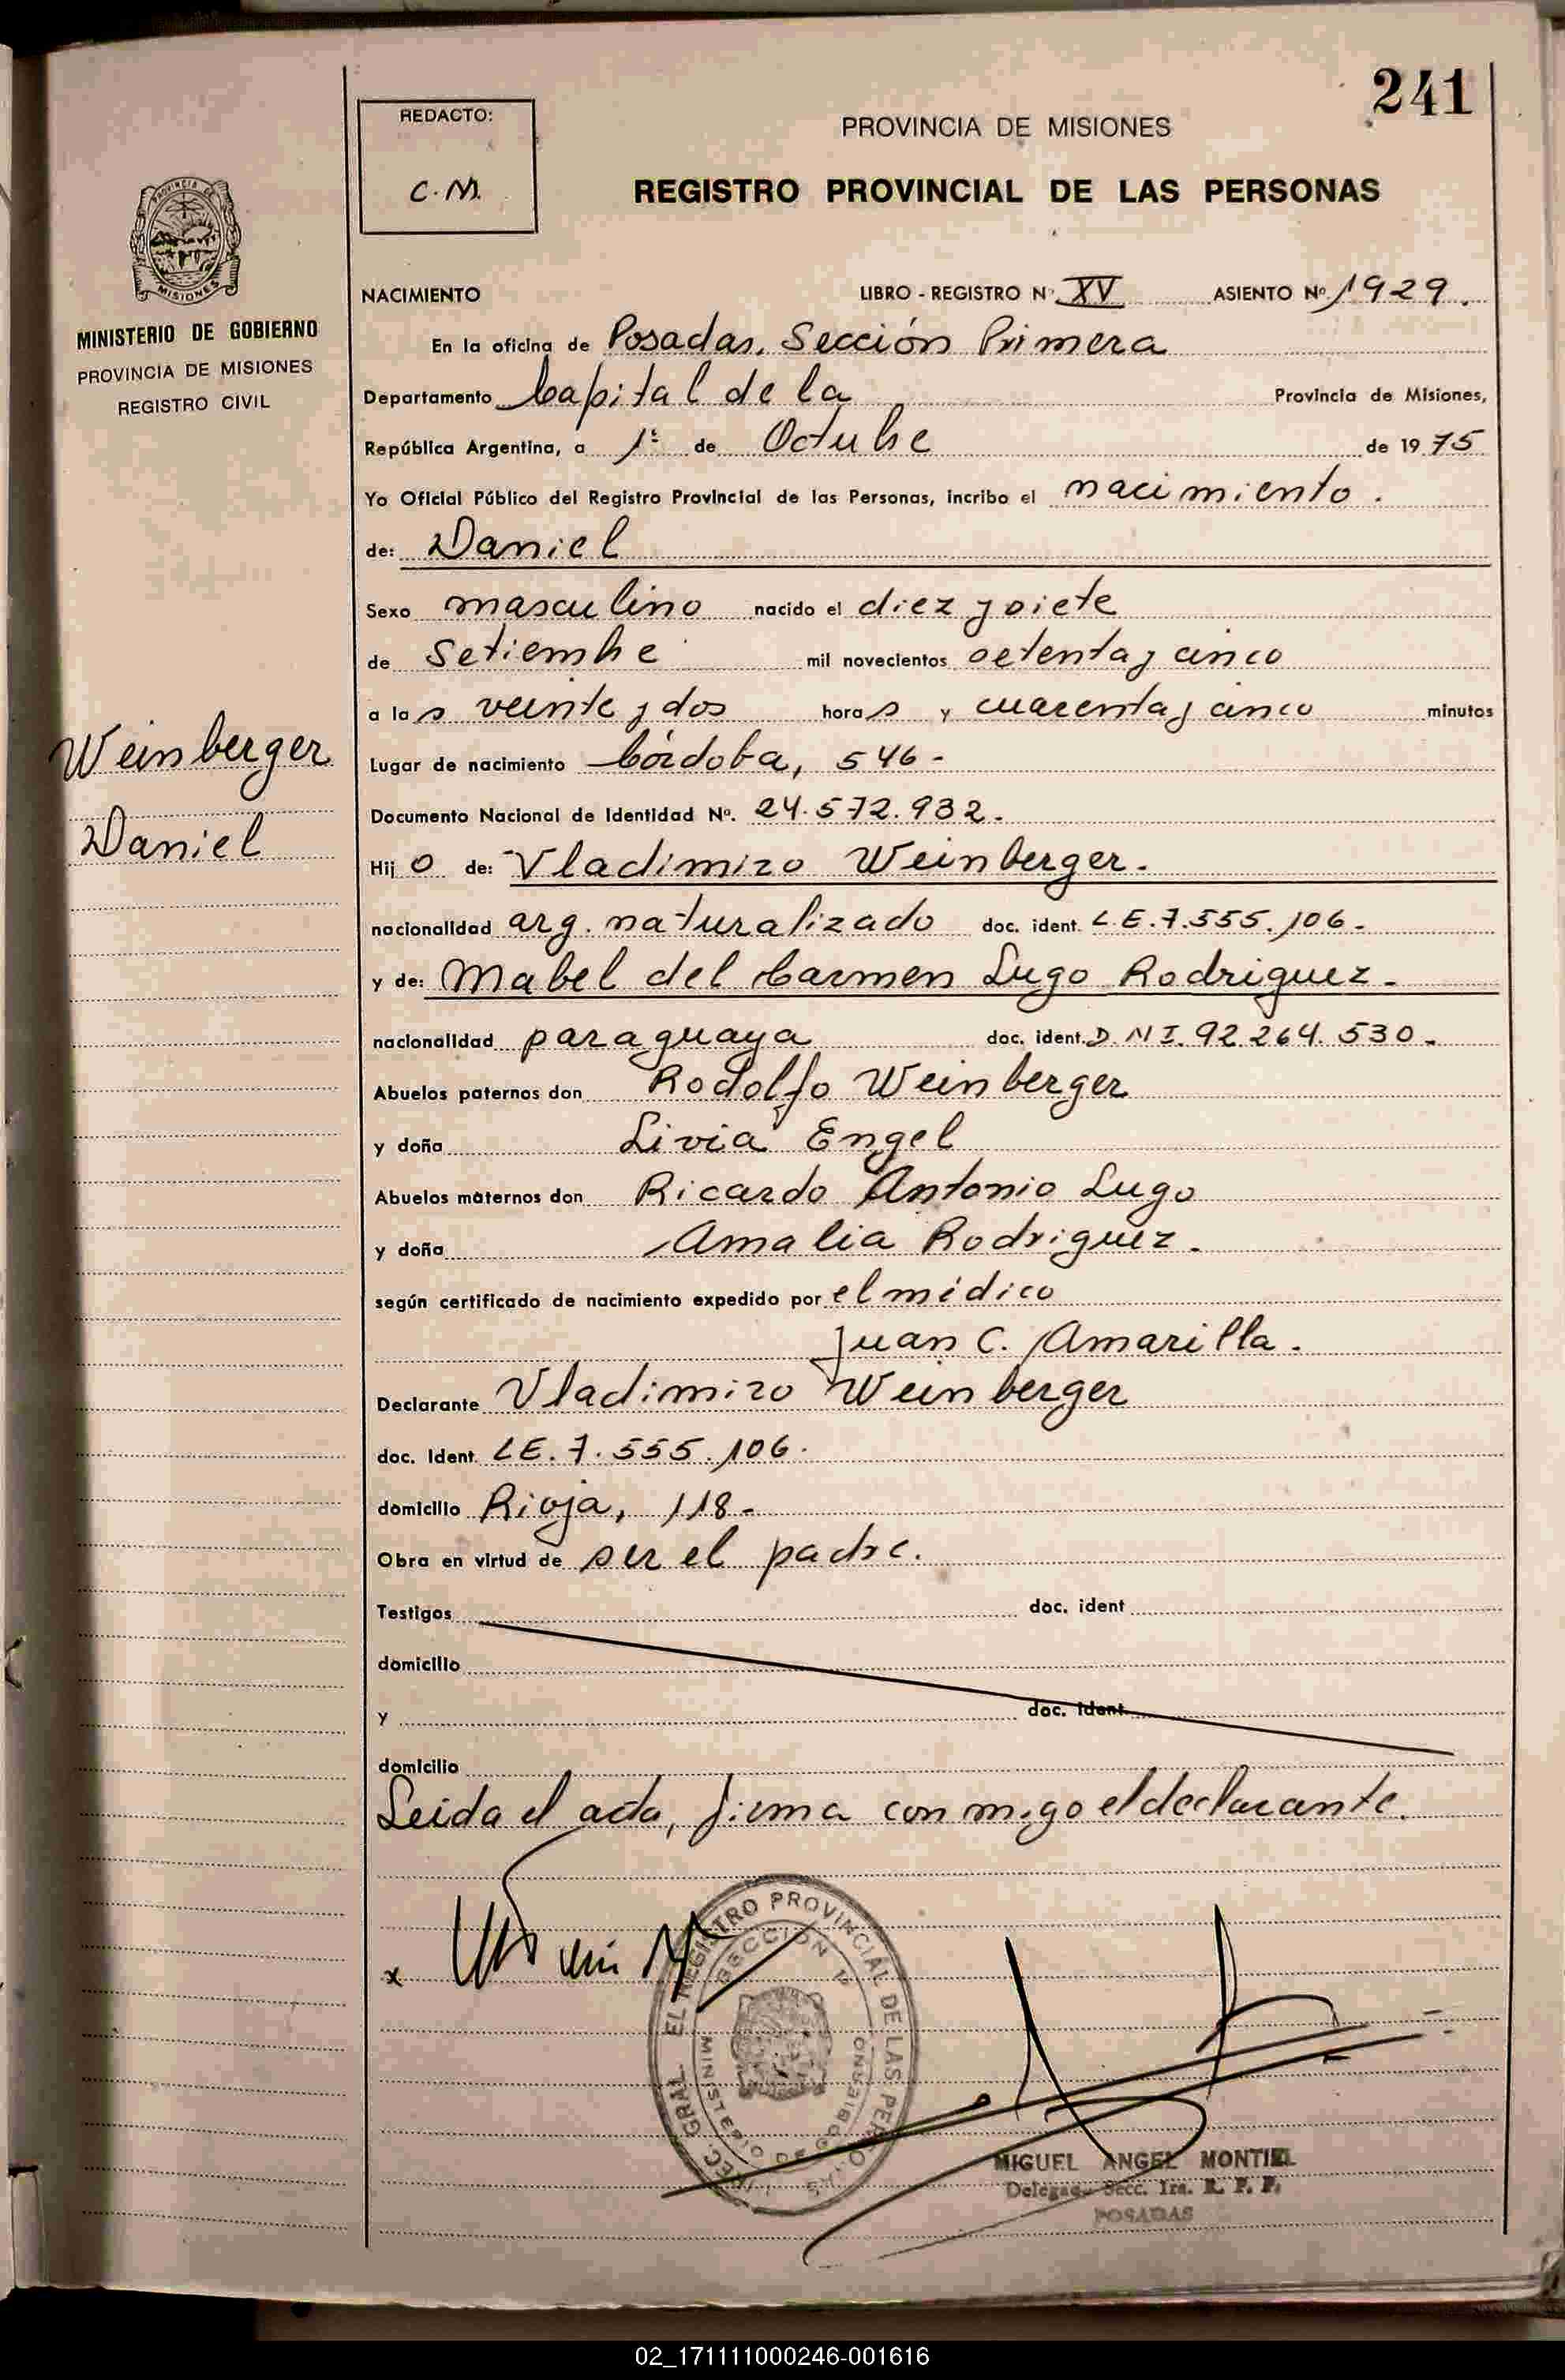 241
REDACTO:
C.M.
PROVINCIA DE MISIONES
REGISTRO PROVINCIAL DE LAS PERSONAS
PROVINCIA DE
MISIONES
MINISTERIO DE GOBIERNO
PROVINCIA DE MISIONES
REGISTRO CIVIL
Weinberger
Daniel
NACIMIENTO LIBRO - REGISTRO Nº XV ASIENTO Nº 1929.
En la oficina de Posadas, Sección Primera
Departamento Capital de la Provincia de Misiones,
República Argentina, a 1º de Octubre de 1975
Yo Oficial Público del Registro Provincial de las Personas, incribo el nacimiento.
de: Daniel
Sexo masculino nacido el diez y siete
de Setiembre mil novecientos setenta y cinco
a las veinte y dos horas y cuarenta y cinco minutos
Lugar de nacimiento Córdoba, 546-
Documento Nacional de Identidad Nº. 24.572.932.
Hijo de: Vladimiro Weinberger.
nacionalidad arg. naturalizado doc. ident. L.E.7.555.106.
y de: Mabel del Carmen Lugo Rodriguez.
nacionalidad paraguaya doc. ident. D.N.I. 92.264.530.
Abuelos paternos don Rodolfo Weinberger
y doña Livia Engel
Abuelos maternos don Ricardo Antonio Lugo
y doña Amalia Rodriguez.
según certificado de nacimiento expedido por el médico
Juan C. Amarilla.
Declarante Vladimiro Weinberger
doc. Ident. LE.7.555.106.
domicilio Rioja, 118-
Obra en virtud de ser el padre.
Testigos doc. ident
domicilio
y doc. ident
domicilio
Leida el acta, firma conmigo el declarante.
x
REGISTRO PROVINCIAL DE LAS
SECCION 1ª
MINISTERIO DE GOBIERNO
MIGUEL ANGEL MONTIEL
Delegad. Secc. 1ra. R. P. P.
POSADAS
02_171111000246-001616